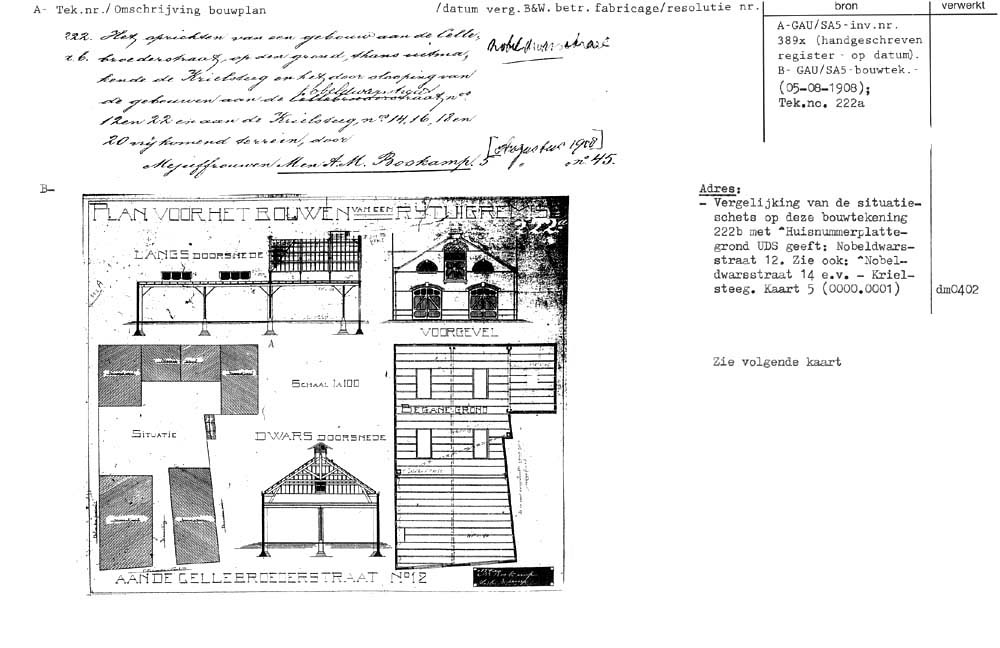 A- Tek.nr./ Omschrijving bouwplan /datum verg.B&W. betr. fabricage/resolutie nr. bron verwerkt
222. Het oprichten van een gebouw aan de Celle-
broederstraat, op den grond, thans uitma-
kende de Krielsteeg en het door slooping van
de gebouwen aan de Cellebroederstraat, nos
Nobeldwarsstraat
12 en 22 en aan de Krielsteeg, nos 14, 16, 18 en
20 vrijkomend terrein, door
Mejuffrouwen M en A.M. Boskamp. 5 [Augustus 1908] no 45.
Nobeldwarsstraat
A-GAU/SA5-inv.nr.
389x (handgeschreven
register - op datum).
B- GAU/SA5-bouwtek.-
(05-08-1908);
Tek.no. 222a
B-
PLAN VOOR HET BOUWEN VAN EEN RYTUIGREMISE
222
LANGS DOORSNEDE
VOORGEVEL
A
A
SCHAAL 1 à 100
SITUATIE
DWARS DOORSNEDE
BEGANE GROND
AAN DE CELLEBROEDERSTRAAT No 12
Adres:
- Vergelijking van de situatie-
schets op deze bouwtekening
222b met ^Huisnummerplatte-
grond UDS geeft; Nobeldwars-
straat 12. Zie ook: ^Nobel-
dwarsstraat 14 e.v. - Kriel-
steeg. Kaart 5 (0000.0001) dm0402
Zie volgende kaart